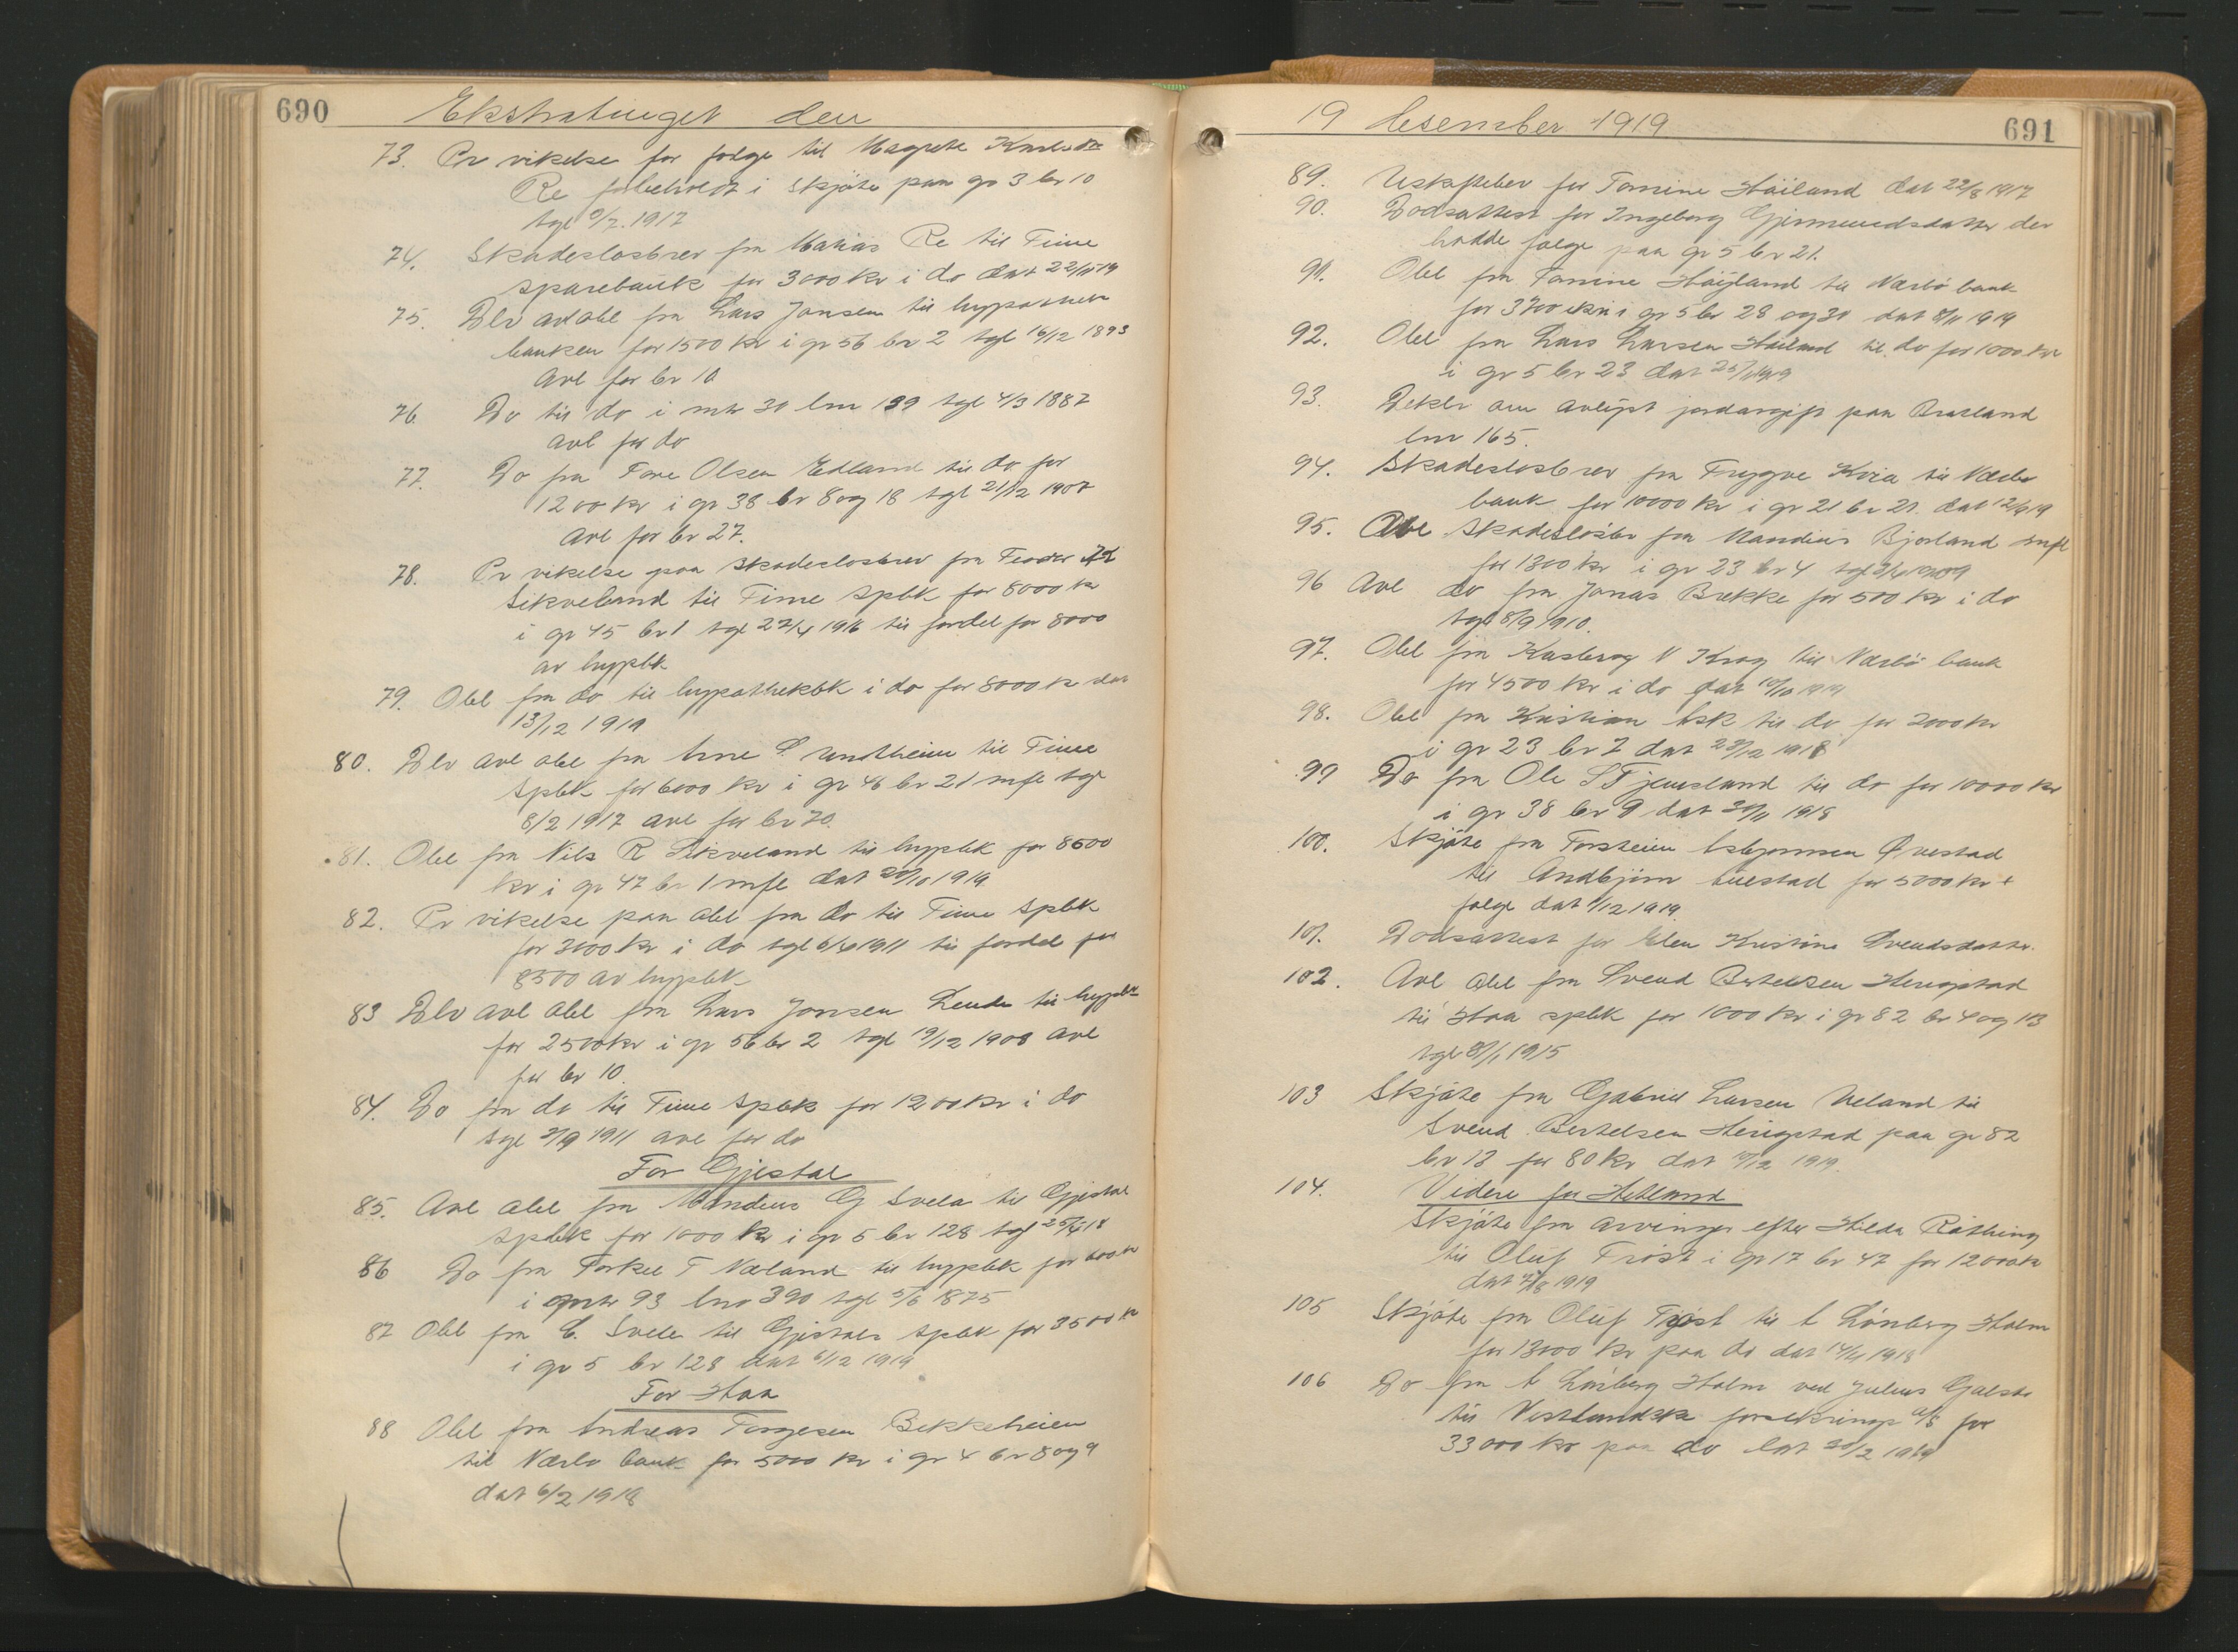 690 Ekstratinget den
73. Pr vikelse for følge til Magrete Knudsdtr
Re forbeholdt i skjøte paa gr 3 br 10
tgl 9/7. 1917
74. Skadeslosbrev fra Matias Re til Time
sparebank for 3000 kr i do dat 22/11 19
75. Dlv avl obl fra Lars Jonsen til hypothek
banken for 1500 kr i gr 56 br 2 tgl 16/12 1893
avl for br 10
76. Do til do i mtr 30 lnr 139 tgl 4/3 1887
avl for do
77. Do fra Tore Olsen Edland til do for
1200 kr i gr 38 br 8 og 18 tgl 21/12 1907
avl for br 27.
78. Pr vikelse paa skadeslosbrev fra
Sikveland til Time spbk for 8000 kr
i gr 45 br 1 tgl 27/4 1916 til fordel for 8000
av hypbk
79. Obl fra do til hypothekbk i do for 8000 kr dat
13/12 1919
80. Dlv avl obl fra Arne S Undheim til Time
spbk for 6000 kr i gr 46 br 21 mfl tgl
8/2 1917 avl for br 70.
81. Obl fra Nils R Sikveland til hypbk for 8500
kr i gr 47 br 1 mfl dat 20/10 1919.
82. Pr vikelse paa obl fra do til Time spbk
for 3000 kr i do tgl 6/6 1911 til fordel for
8500 av hypbk
83 Dlv avl obl fra Lars Jonsen Lende til hypbk
for 2500 kr i gr 56 br 2 tgl 19/12 1908 avl
for br 10.
84. Do fra do til Time spbk for 1200 kr i do
tgl 2/9 1911 avl for do
For Gjestal
85. Avl obl fra Mandius G Svela til Gjestal
spbk for 1000 kr i gr 5 br 128 tgl 25/5 18
86 Do fra Torkel T Næland til hypbk for 600 kr
i mtr 93 lnr 390 tgl 5/6 1875
87 Obl fra C. Svela til Gjestals spbk for 3500 kr
i gr 5 br 128 dat 6/12 1919
For Haa
88 Obl fra Andreas Torgersen Bekkeheien
til Nærbø bank for 5000 kr i gr 4 br 8 og 9
dat 6/2 1918
19 desember 1919 691
89. Uskiftebev for Tomine Høiland dat 22/8 1917
90. Dodsattest for Ingeborg Gjermundsdatter der
hadde følge paa gr 5 br 21.
91. Obl fra Tomine Høyland til Nærbø bank
for 3700 kr i gr 5 br 28 og 30 dat 8/11 1919
92. Obl fra Lars Larsen Høiland til do for 1000 kr
i gr 5 br 23 dat 25/11 1919
93. Deklr om avløst jordavgift paa Braland
lnr 165.
94. Skadeslosbrev fra Trygve Kvia til Nærbø
bank for 10000 kr i gr 21 br 21. dat 12/9 19
95. Avl skadesløsbr fra Mandius Bjorland mfl
for 1300 kr i gr 23 br 4 tgl 2/4 1909
96 Avl do fra Jonas Brekke for 500 kr i do
tgl 8/9 1910.
97. Obl fra Kasberg N Krag til Nærbø bank
for 4500 kr i do dat 10/10 1919
98. Obl fra Kristian Ask til do for 2000 kr
i gr 23 br 7 dat 23/12 1918
99 Do fra Ole S Tjemsland til do for 10000 kr
i gr 38 br 9 dat 30/11 1918
100. Skjøte fra Torstein Asbjornsen Øvestad
til Andbjørn Auestad for 5000 kr +
følge dat 1/12 1919.
101. Dodsattest for Elen Kristine Svendsdatter.
102. Avl obl fra Svend Bertelsen Herigstad
til Haa spbk for 1000 kr i gr 82 br 4 og 13
tgl 8/1 1915
103 Skjøte fra Gabriel Larsen Ueland til
Svend Bertelsen Herigstad paa gr 82
br 13 for 80 kr dat 17/12 1919.
104. Videre for Hetland
Skjøte fra arvinger efter Hilda Røthing
til Oluf Trøst i gr 17 br 47 for 12000 kr
dat 7/8 1919
105 Skjøte fra Oluf Trøst til A Lønberg Holm
for 13000 kr paa do dat 14/4 1918
106 Do fra A Lønberg Holm ved Julius Galste
til Vestlandske forsikrings a/s for
33000 kr paa do dat 20/2 1919